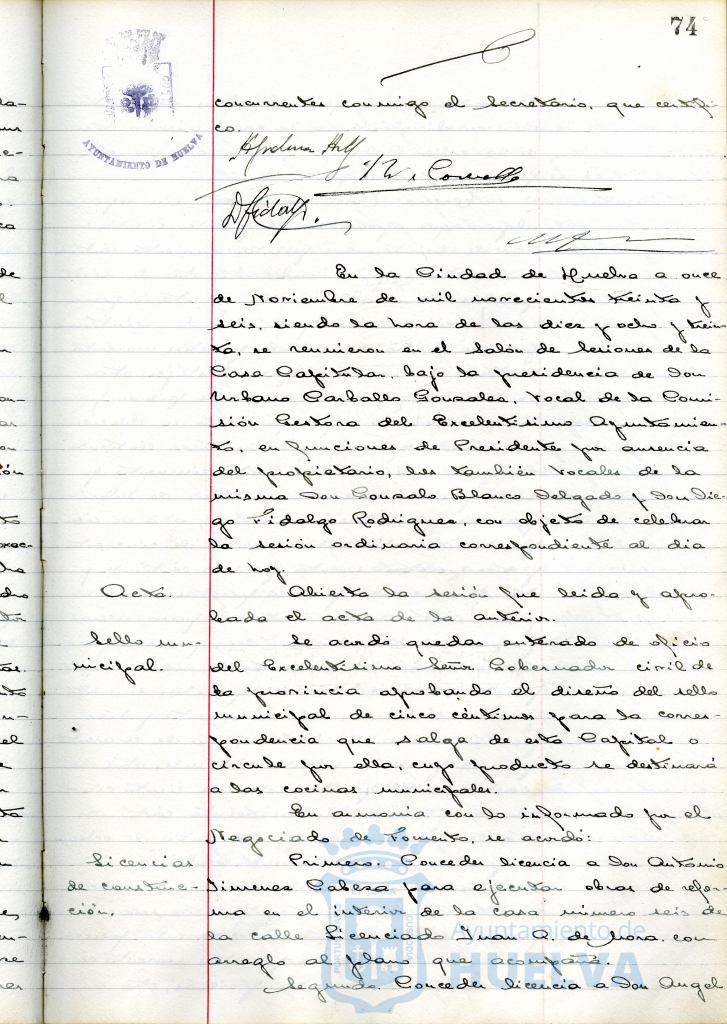 74
AYUNTAMIENTO DE HUELVA
concurrentes conmigo el Secretario, que certifi-
co.
D Fidalgo.
En la Ciudad de Huelva a once
de Noviembre de mil novecientos treinta y
seis, siendo la hora de las diez y ocho y trein-
ta, se reunieron en el Salón de Sesiones de la
Casa Capitular, bajo la presidencia de Don
Urbano Carballo Gonzalez, Vocal de la Comi-
sión Gestora del Excelentísimo Ayuntamien-
to, en funciones de Presidente por ausencia
del propietario, los también Vocales de la
misma Don Gonzalo Blanco Delgado y Don Die-
go Fidalgo Rodriguez, con objeto de celebrar
la sesión ordinaria correspondiente al dia
de hoy.
Acta.
Abierta la sesión fue leida y apro-
bada el acta de la anterior.
Sello mu-
nicipal.
Se acordó quedar enterado de oficio
del Excelentisimo Señor Gobernador civil de
la provincia aprobando el diseño del sello
municipal de cinco céntimos para la corres-
pondencia que salga de esta Capital o
circule por ella, cuyo producto se destinará
a las cocinas municipales.
En armonia con lo informado por el
Negociado de Fomento, se acordó:
Licencias
de construc-
ción.
Primero. Conceder licencia a Don Antonio
Jimenez Cabeza para ejecutar obras de refor-
ma en el interior de la casa número seis de
la calle Licenciado Juan A. de Mora, con
arreglo al plano que acompaña.
Segundo. Conceder licencia a Don Angel
Ayuntamiento de
HUELVA